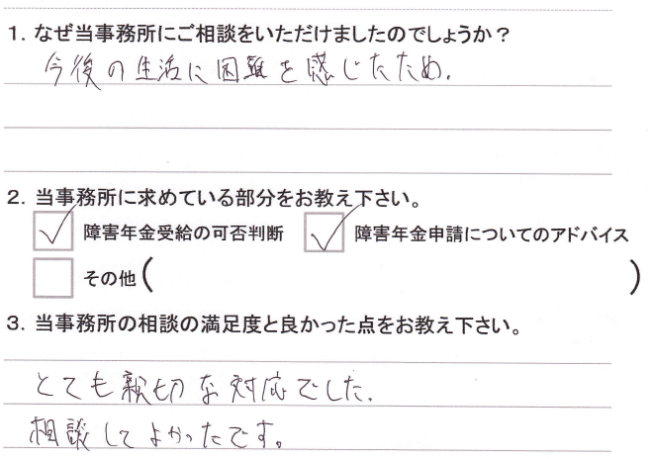 1. なぜ当事務所にご相談をいただけましたのでしょうか？
今後の生活に困難を感じたため.
2. 当事務所に求めている部分をお教え下さい。
障害年金受給の可否判断 障害年金申請についてのアドバイス
その他( )
3. 当事務所の相談の満足度と良かった点をお教え下さい。
とても親切な対応でした.
相談してよかったです。